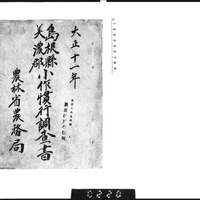 大正十一年
島根縣
美濃郡
小作慣行調査書
農林省農務局
0220